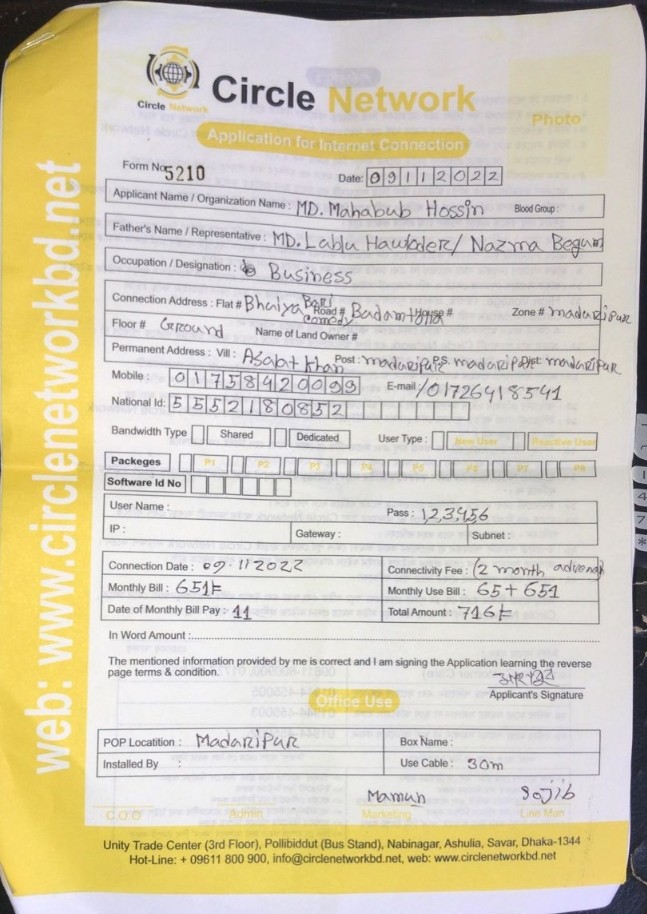 Circle Network
Circle Network
Application for Internet Connection
Photo
web: www.circlenetworkbd.net
Form No. 5210
Date: 09112022
Applicant Name / Organization Name : MD. Mahabub Hossin Blood Group :
Father's Name / Representative : MD. Lablu Hawlader/ Nazma Begum
Occupation / Designation : Business
Connection Address : Flat # Bhaiya Bari Road # Badamtolla House # Zone # madaripur
Floor # Ground Name of Land Owner #
Permanent Address : Vill : Asabat khan Post : madaripur P.S. madaripur Dist: madaripur
Mobile : 01758920099 E-mail /01726418541
National Id: 5552180852
Bandwidth Type Shared Dedicated User Type : New User Reactive User
Packeges P1 P2 P3 P4 P5 P6 P7 P8
Software Id No
User Name : Pass : 123456
IP : Gateway : Subnet :
Connection Date : 09.112022 Connectivity Fee : (2 month
Monthly Bill : 651/= Monthly Use Bill : 65 + 651
Date of Monthly Bill Pay : 11 Total Amount : 716/=
In Word Amount :
The mentioned information provided by me is correct and I am signing the Application learning the reverse
page terms & condition.
Applicant's Signature
Office Use
POP Locatition : Madaripur Box Name :
Installed By : Use Cable : 30m
Mamun Sojib
C.O.O Admin Marketing Line Man
Unity Trade Center (3rd Floor), Pollibiddut (Bus Stand), Nabinagar, Ashulia, Savar, Dhaka-1344
Hot-Line: + 09611 800 900, info@circlenetworkbd.net, web: www.circlenetworkbd.net